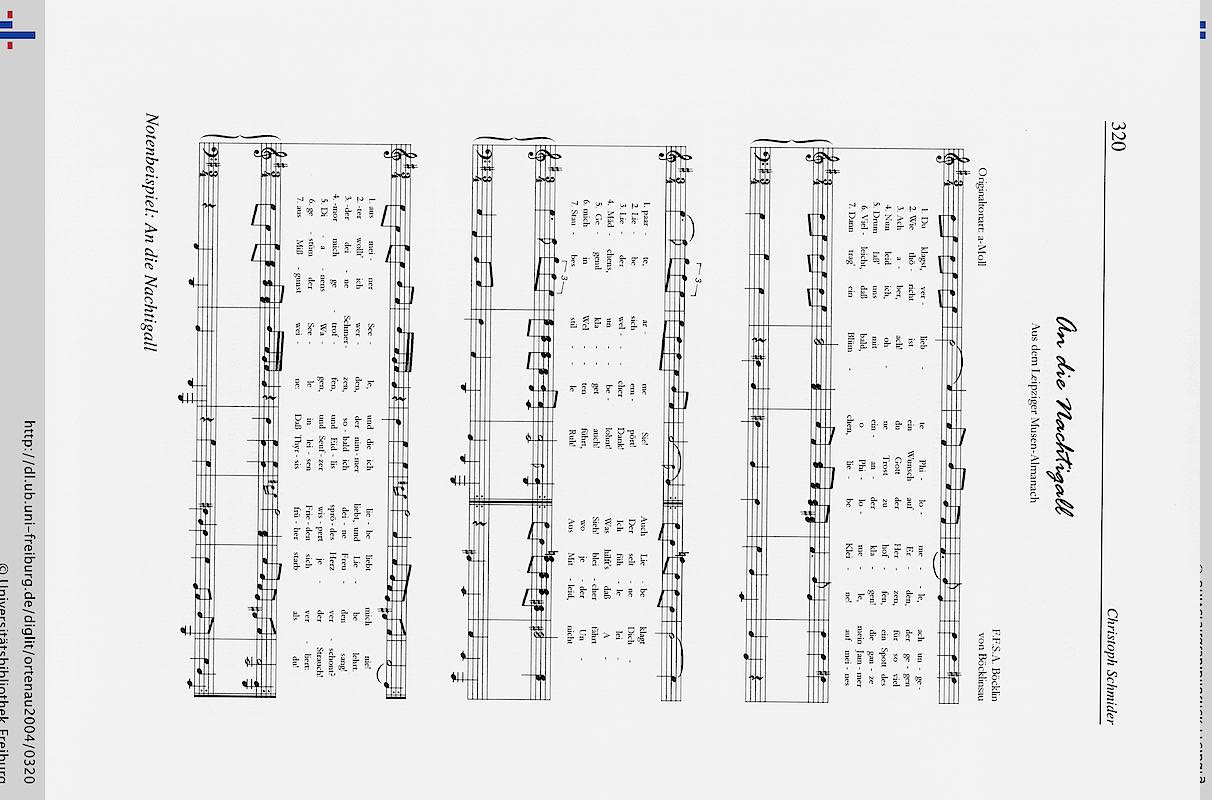 320
Christoph Schmider
An die Nachtigall
Aus dem Leipziger Musen-Almanach
Originaltonart: a-Moll
F.F.S.A. Böcklin
von Böcklinsau
1. Du klagst, ver - lieb - te Phi - lo - me - le, ach un - ge -
2. Wie thö - richt ist ein Wunsch auf Er - den, der ge - gen
3. Ach a - ber, ach! du Gott der Her - zen, für so viel
4. Nun leid ich, oh - ne Trost zu hof - fen, ein Spott des
5. Drum laß' uns mit ein - an - der kla - gen! die gan - ze
6. Viel - leicht, daß bald, o Phi - lo - me - le, mein Jam - mer
7. Dann trag' ein Blüm - chen, lie - be Klei - ne! auf mei - nes
3
1. paar - te, ar - me Sie! Auch Lie - be klagt
2. Lie - be sich em - pört! Der selt - ne Dich -
3. Lie - der wel - cher Dank! Ich füh - le lei -
4. Mäd - chens, un - be - lohnt! Was hilft's daß A -
5. Ge - gend kla - get auch! Sieh! blei - cher fährt
6. mich in Wel - ten führt, wo je - der Un -
7. Stau - bes stil - le Ruh! Aus Mit - leid, nicht
3
1. aus mei - ner See - le, und die ich lie - be liebt mich nie!
2. -ter wollt' ich wer - den, der nim - mer liebt, und Lie - be lehrt.
3. -der dei - ne Schmer - zen, so - bald ich dei - ne Freu - den sang!
4. -mor mich ge - trof - fen, und Eid - lis sprö - des Herz ver - schont?
5. Di - a - nens Wa - gen, und Seuf - zer wis - pert je - der Strauch!
6. ge - stüm der See - le in lei - sen Frie - den sich ver - liert:
7. aus Miß - gunst wei - ne: Daß Thyr - sis frü - her starb als du!
Notenbeispiel: An die Nachtigall
http://dl.ub.uni-freiburg.de/diglit/ortenau2004/0320
© Universitätsbibliothek Freiburg